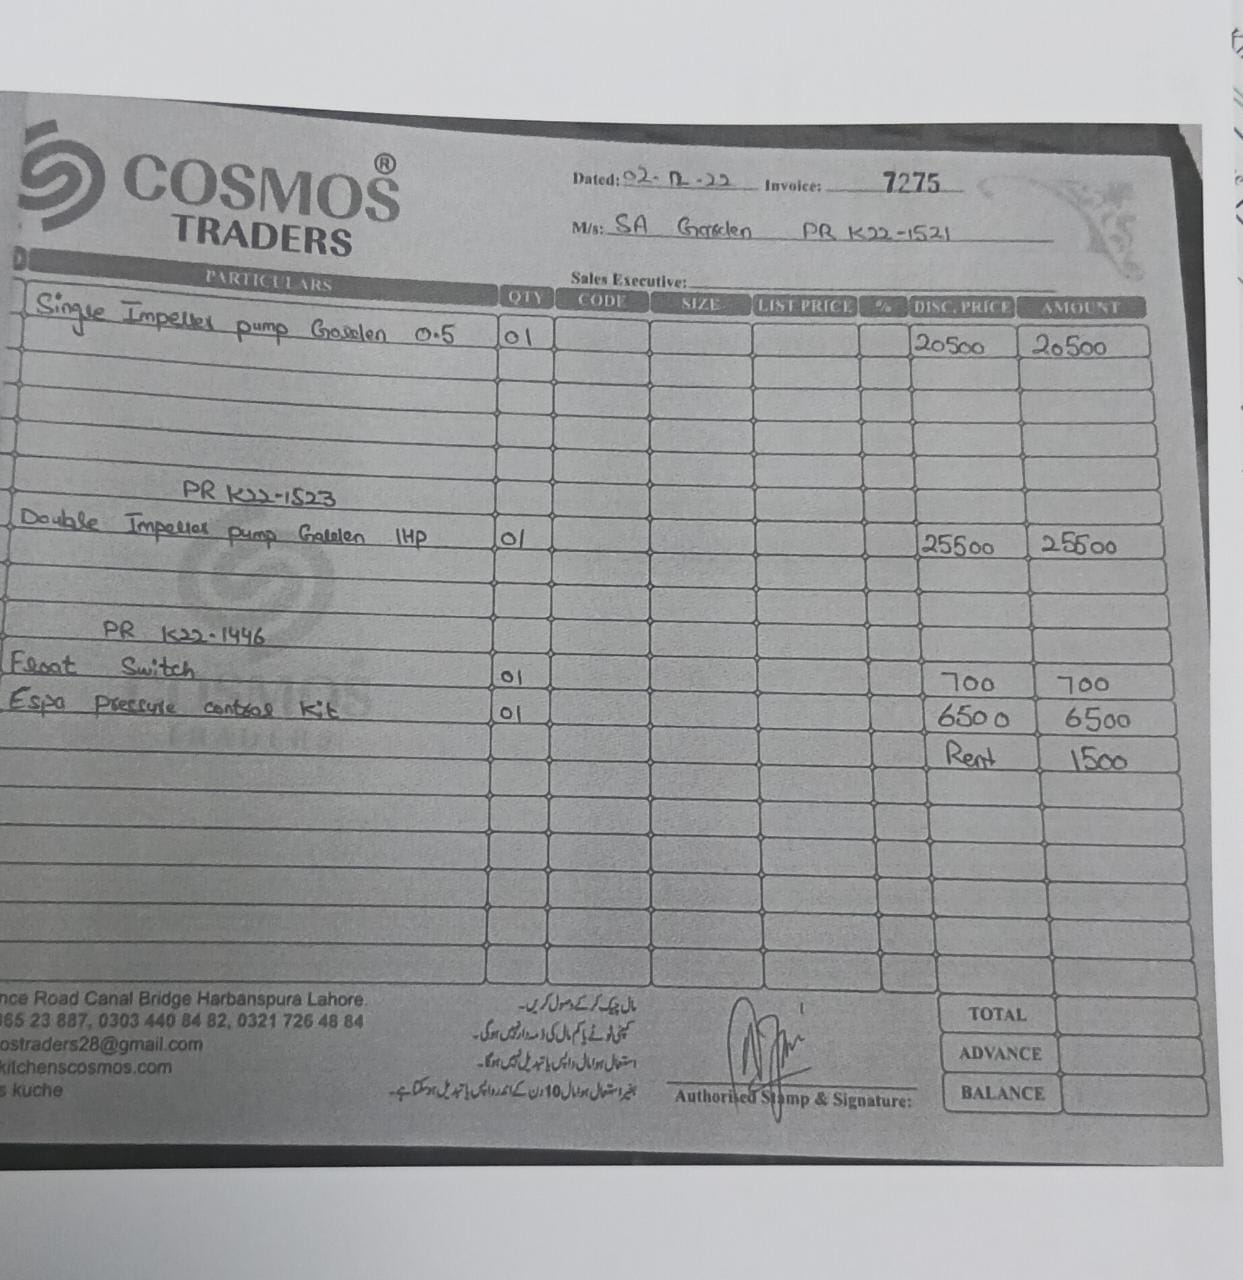 COSMOS®
TRADERS
Dated: 02-12-22 Invoice: 7275
M/s: SA Garden PR K22-1521
Sales Executive:
PARTICULARS QTY CODE SIZE LIST PRICE % DISC. PRICE AMOUNT
Single Impeller pump Garden 0.5 01 20500 20500
PR K22-1523
Double Impeller pump Garden 1HP 01 25500 25500
PR K22-1446
Float Switch 01 700 700
Espa pressure control Kit 01 6500 6500
Rent 1500
COSMOS
TRADERS
nce Road Canal Bridge Harbanspura Lahore.
365 23 887, 0303 440 84 82, 0321 726 48 84
ostraders28@gmail.com
kitchenscosmos.com
s kuche
مال چیک کر کے وصول کریں۔
استعمال شدہ مال واپس یا تبدیل نہیں ہوگا۔
بغیر استعمال شدہ مال 10 دن کے اندر واپس یا تبدیل ہو سکتا ہے۔
Authorised Stamp & Signature:
TOTAL
ADVANCE
BALANCE